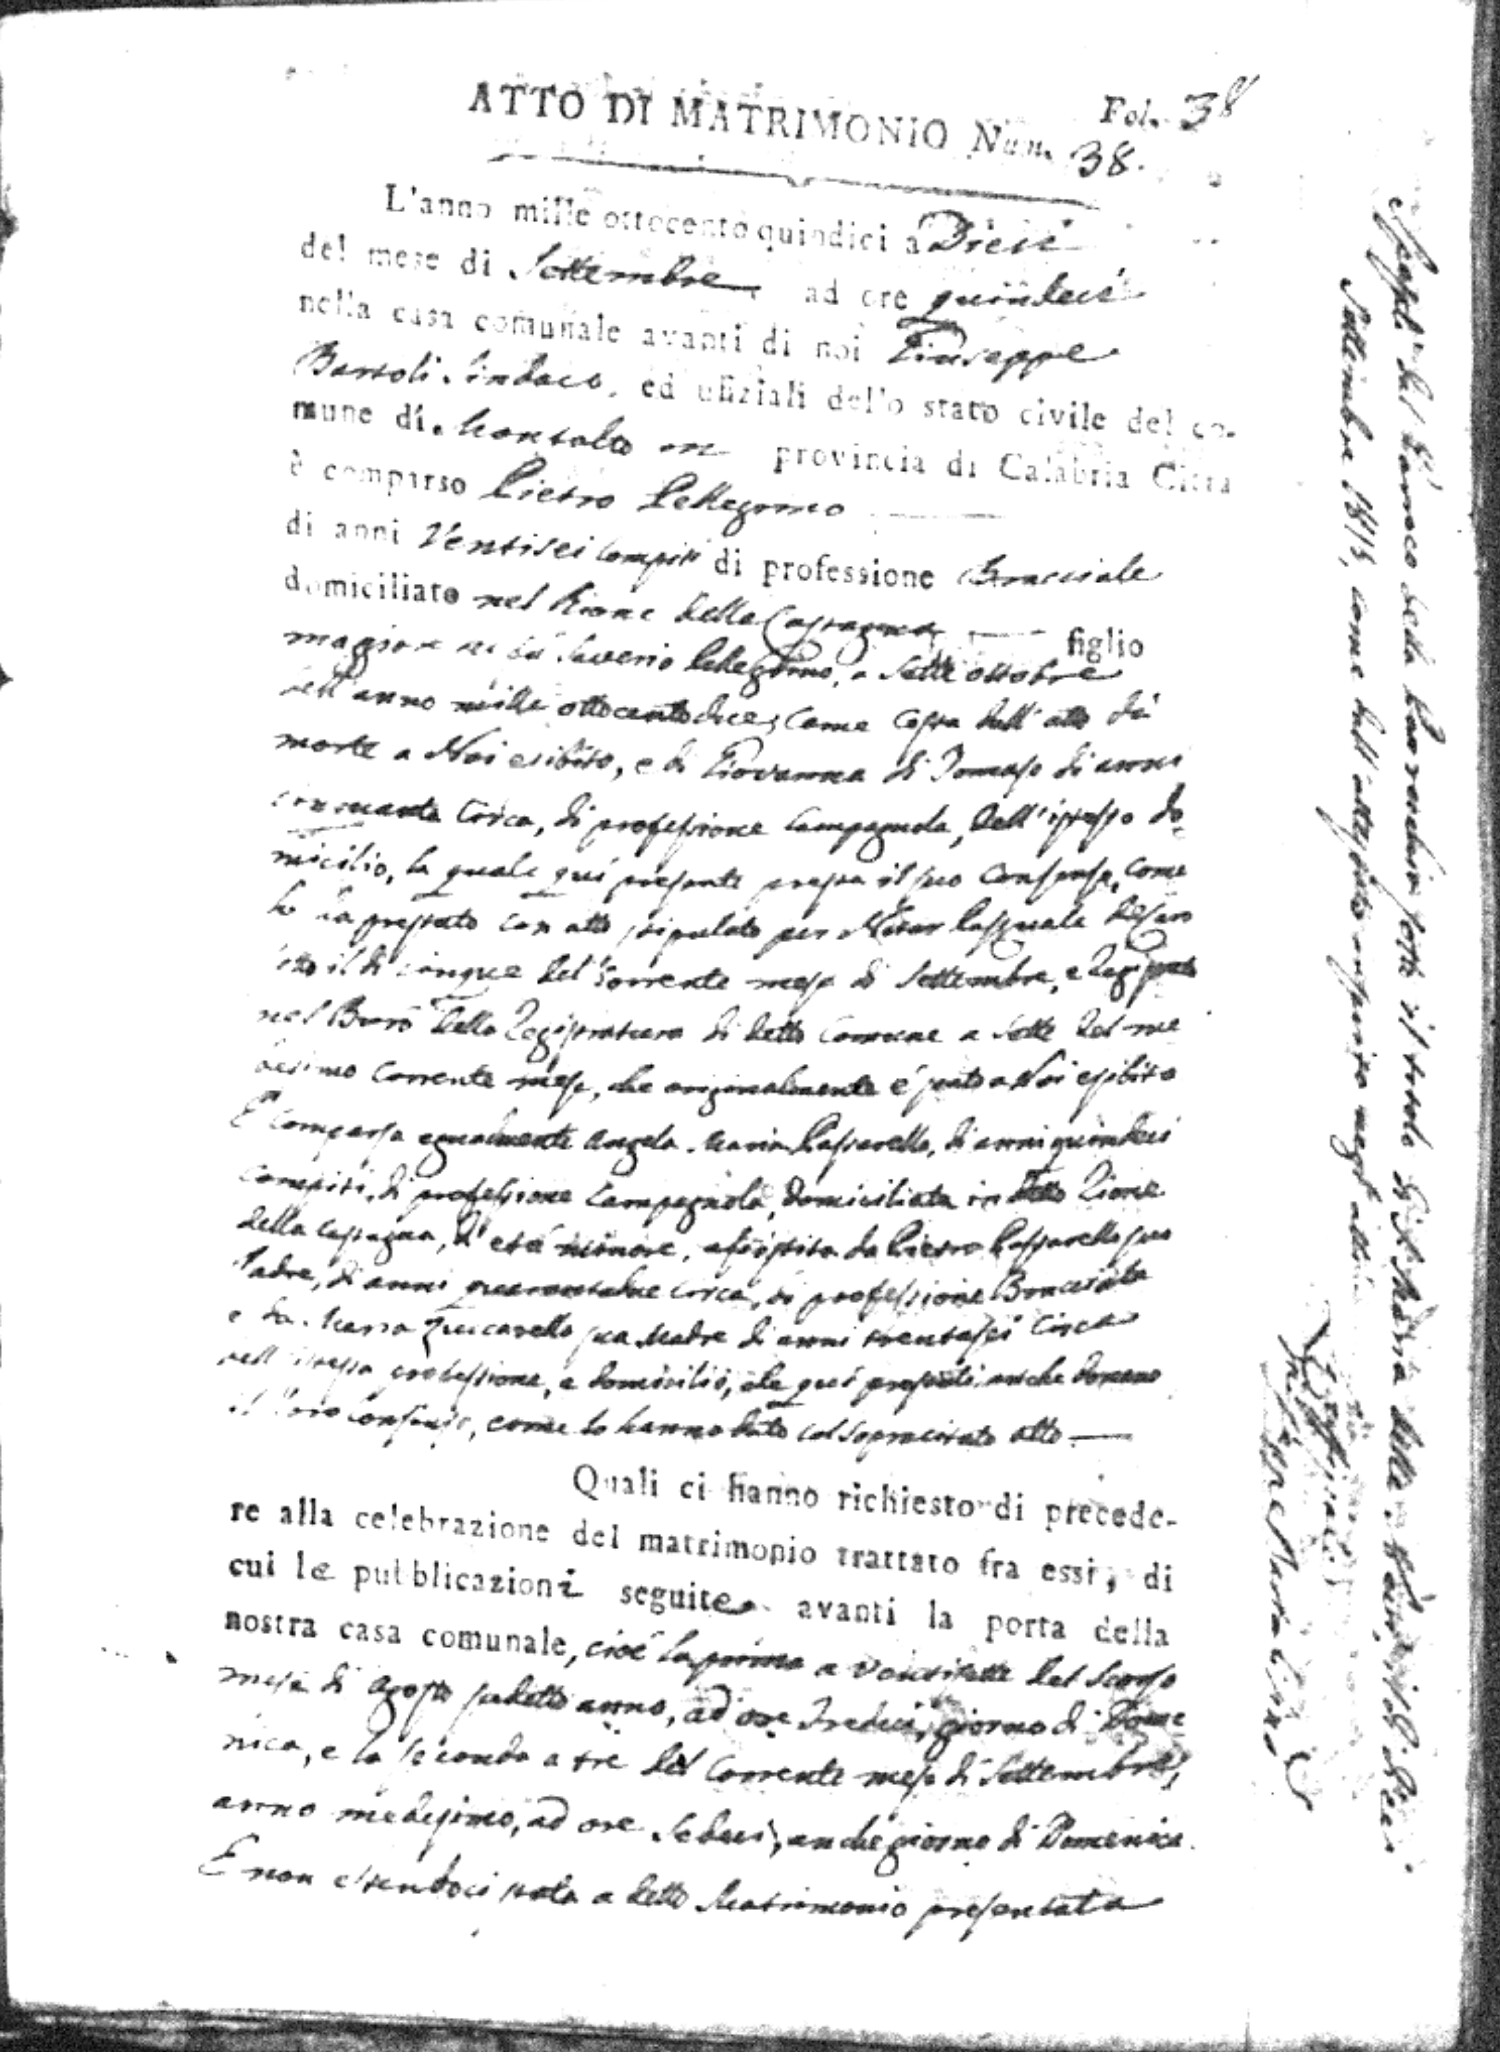 Fol. 38
ATTO DI MATRIMONIO Num. 38.
L'anno mille ottocento quindici a Dieci
del mese di Settembre ad ore quindeci
nella casa comunale avanti di noi Giuseppe
Bartoli Sindaco, ed ufiziali dello stato civile del co-
mune di Montalto in provincia di Calabria Citra
è comparso Pietro Pellegrino
di anni Ventisei compiti di professione Bracciale
domiciliato nel Rione della Castagna figlio
maggiore di Saverio Pellegrino, a sette ottobre
dell'anno mille ottocento dieci, come costa dall'atto di
morte a Noi esibito, e di Giovanna di Tomaso di anni
cinquanta circa, di professione Campagnola, dell'istesso do-
micilio, la quale qui presente presta il suo consenso, come
lo ha prestato con atto stipulato per Notar Pasquale
sotto il di cinque del corrente mese di Settembre, e Registrato
nel Burò della Registratura di detto Comune a sette del me
desimo corrente mese, che originalmente è stato a Noi esibito
E comparsa egualmente Angela Maria Passarello, di anni quindeci
compiti, di professione Campagnola, domiciliata in detto Rione
della Castagna, d'età minore, assistita da Pietro Passarello suo
Padre, di anni quarantadue circa, di professione Bracciale
e da Maria Zuccarello sua Madre di anni trentasei circa
dell'istessa professione, e domicilio, che qui presenti anche donano
il loro consenso, come lo hanno dato col sopracitato atto
Quali ci hanno richiesto di precede-
re alla celebrazione del matrimonio trattato fra essi, di
cui le pubblicazioni seguite avanti la porta della
nostra casa comunale, cioè la prima a ventisette del scorso
mese di Agosto sudetto anno, ad ore Tredici, giorno di Dome
nica, e la seconda a tre del corrente mese di Settembre,
anno medesimo, ad ore Sedeci, anche giorno di Domenica.
E non essendoci stata a detto Matrimonio presentata
Settembre 1815, come dall'attestato